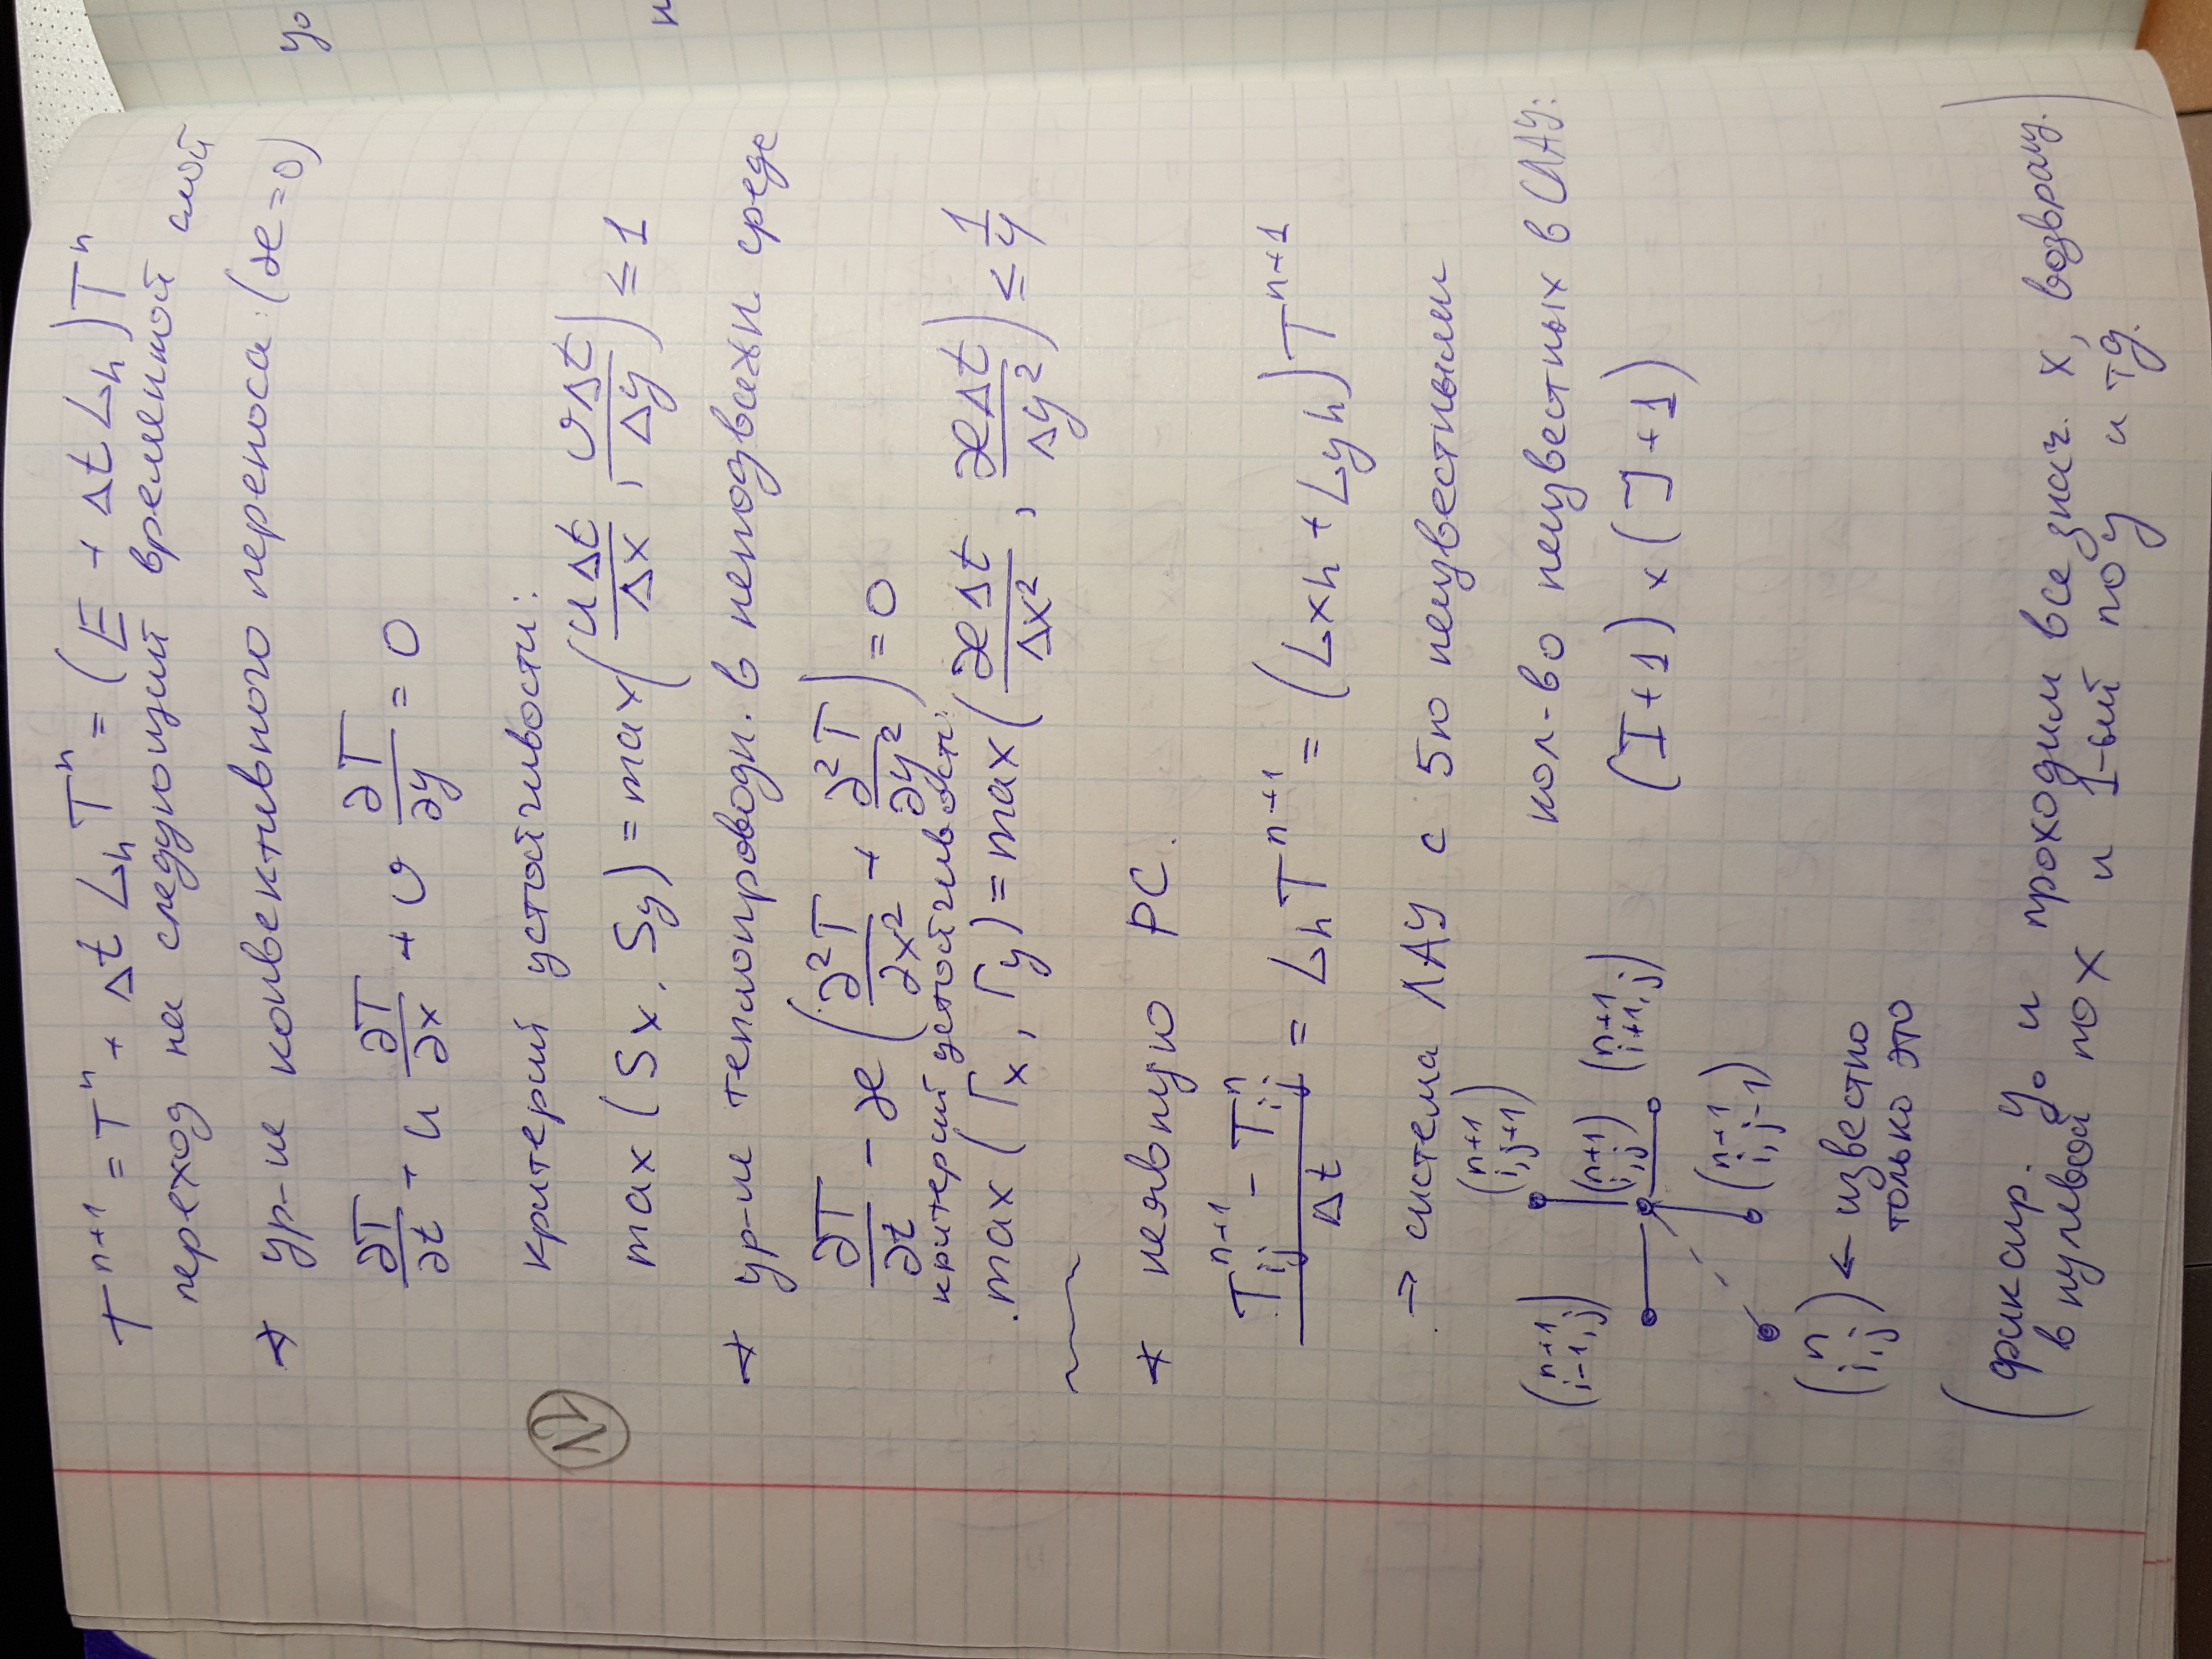 T^{n+1} = T^n + Δt L_h T^n = (E + Δt L_h) T^n
переход на следующий временной слой
∗ ур-ие конвективного переноса: (æ=0)
∂T/∂t + u ∂T/∂x + v ∂T/∂y = 0
критерий устойчивости:
12
max (S_x, S_y) = max (uΔt/Δx, vΔt/Δy) ≤ 1
∗ ур-ие теплопроводн. в неподвижн. среде
∂T/∂t - æ (∂²T/∂x² + ∂²T/∂y²) = 0
критерий устойчивости:
max (Γ_x, Γ_y) = max (æΔt/Δx², æΔt/Δy²) ≤ 1/4
∗ неявную РС.
(T_{ij}^{n+1} - T_{ij}^n)/Δt = L_h T^{n+1} = (L_{xh} + L_{yh}) T^{n+1}
→ система ЛАУ с 5ю неизвестными
(n+1 i,j+1)
(n+1 i-1,j)
кол-во неизвестных в СЛАУ:
(n+1 i,j) (n+1 i+1,j)
(I+1) × (J+1)
(n+1 i,j-1)
(n i,j) ← известно
только это
(фиксир. y₀ и проходим все знач. x, возвращ.
в нулевой по x и 1-ый по y и тд.)
y₀